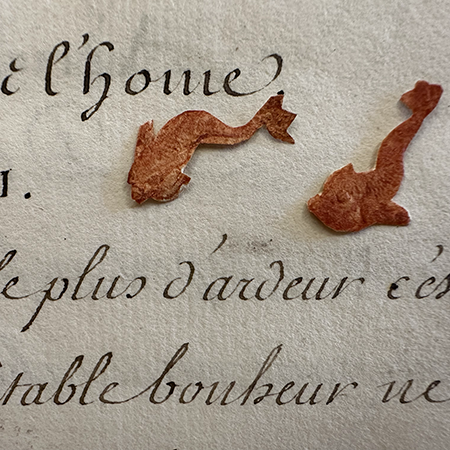 e l'home.
1.
le plus d'ardeur c'es
itable bonheur ne